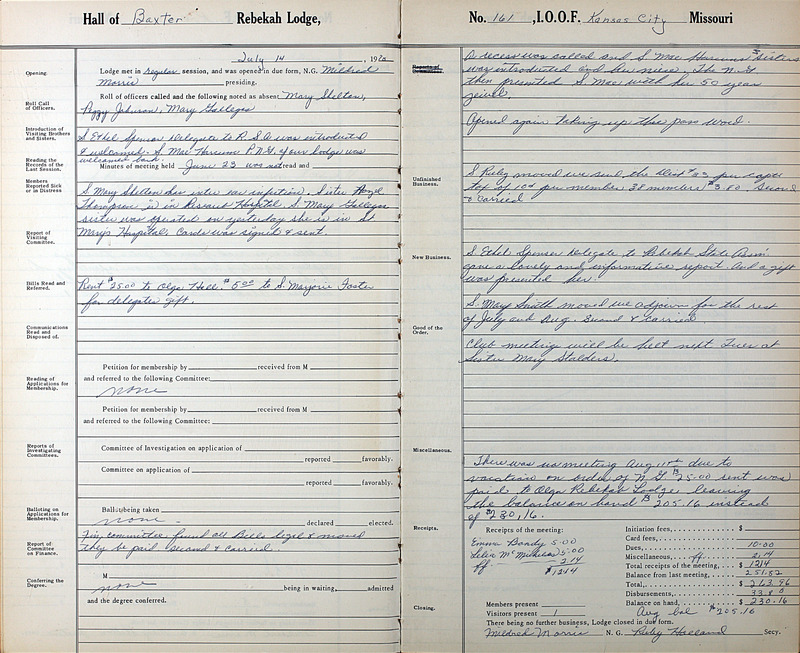 Hall of Baxter Rebekah Lodge,
July 14, 19
Opening. Lodge met in regular session, and was opened in due form, N.G. Mildred
Morris presiding.
Roll Call of Officers. Roll of officers called and the following noted as absent Mary Shelton,
Peggy Johnson, Mary Gallegos
Introduction of Visiting Brothers and Sisters. S. Ethel Spenser Delegate to R.S.A. was introduced
& welcomed. S. Mae P.N.G. of our lodge was
welcomed back.
Reading the Records of the Last Session. Minutes of meeting held June 23 was read and
Members Reported Sick or in Distress S. Mary Shelton has infection. Sister Hazel
Thompson is in Research Hospital. S. Mary Gallegos
sister was operated on yesterday she is in St
Mary's Hospital. Cards was signed & sent.
Report of Visiting Committee.
Bills Read and Referred. Rent $25.00 to Olga Hall. $5.00 to S. Marjorie Foster
for delegates gift.
Communications Read and Disposed of.
Petition for membership by received from M
and referred to the following Committee:
Reading of Applications for Membership. none
Petition for membership by received from M
and referred to the following Committee:
Reports of Investigating Committees. Committee of Investigation on application of
reported favorably.
Committee on application of
reported favorably.
Balloting on Applications for Membership. Ballot being taken
none declared elected.
Report of Committee on Finance. Fin. committee found all Bills legal & moved
they be paid second & carried.
Conferring the Degree. M
none being in waiting, admitted
and the degree conferred.
No. 161, I.O.O.F. Kansas City Missouri
Reports of Committees. A recess was called and S. Mae sisters
was introduced and her niece. The N.G.
then presented S. Mae with her 50 year
jewel.
Opened again taking up the pass word.
Unfinished Business. S. Riley moved we send the per capita
tax of 10¢ per member 38 members $3.80. Second
& carried
New Business. S. Ethel Spenser delegate to Rebekah State Assm
gave a lovely and informative report and a gift
was presented her.
S. Mary Smith moved we adjourn for the rest
of July and Aug. Second & carried.
Good of the Order. Club meeting will be held next Tues at
Sister Mary Stalders.
Miscellaneous. There was no meeting Aug due to
vacation on order of N.G. $25.00 rent was
paid to Olga Rebekah Lodge, leaving
the balance on hand $205.16 instead
of $230.16.
Receipts. Receipts of the meeting:
Emma Boady 5.00
5.00
2.14
$12.14
Initiation fees, $
Card fees,
Dues, 10.00
Miscellaneous, 2.14
Total receipts of the meeting, $ 12.14
Balance from last meeting, 251.82
Total, $ 263.96
Disbursements, 33.80
Balance on hand, $ 230.16
Aug bal $205.16
Members present
Visitors present 1
Closing. There being no further business, Lodge closed in due form.
Mildred Morris N.G. Riley Holland Secy.